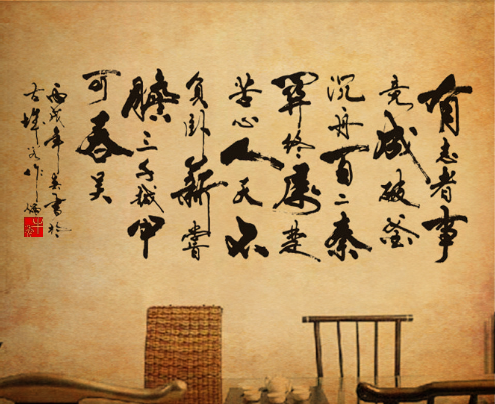 有志者事
竟成破釜
沉舟百二秦
關終属楚
苦心人天不
負卧薪嘗
膽三千越甲
可吞吴
丙戌年書於
古